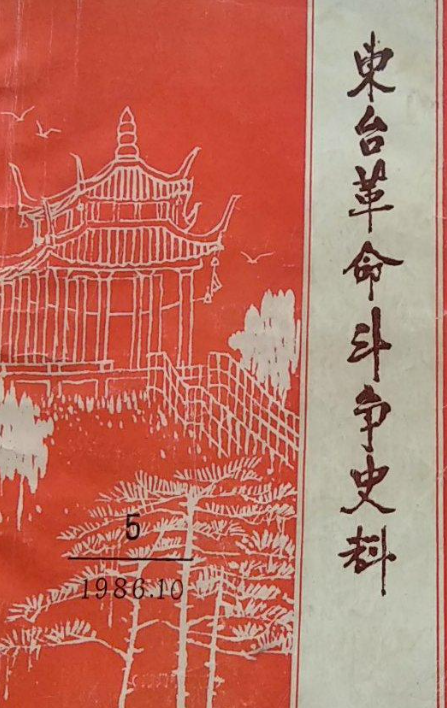 東台革命斗争史料
5
1986.10